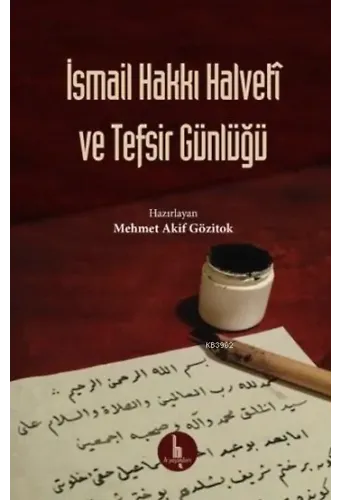 İsmail Hakkı Halvetî
ve Tefsir Günlüğü
Hazırlayan
Mehmet Akif Gözitok
KB3962
بسم الله الرحمن الرحيم
الحمد لله رب العالمين والصلاة والسلام على
سيد الخلق محمد وآله وصحبه اجمعين
اما بعد بو عبد
اسماعيل حقى خلوتى
h yayınları